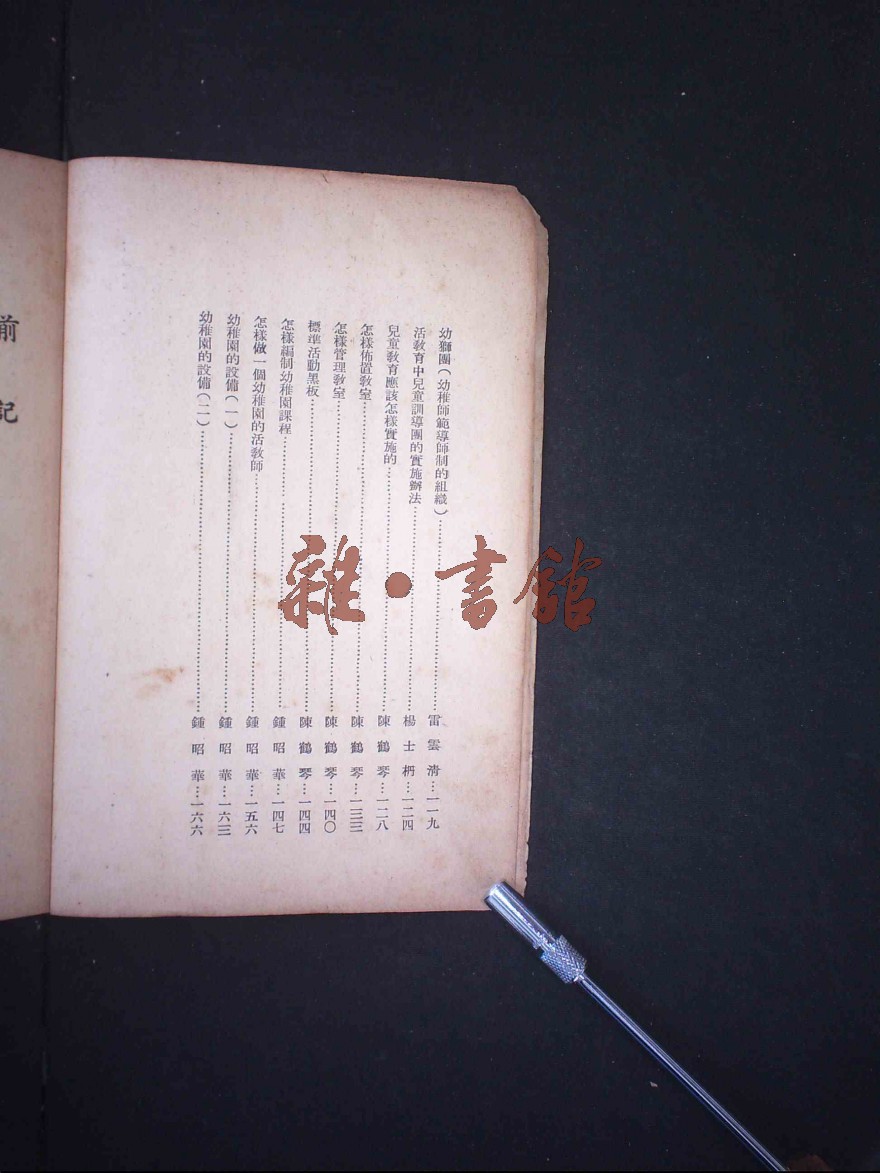 幼獅團(幼稚師範導師制的組織)……雷雲清…一一九
活教育中兒童訓導團的實施辦法……楊士枬…一二四
兒童教育應該怎樣實施的……陳鶴琴…一二八
怎樣佈置教室……陳鶴琴…一三三
怎樣管理教室……陳鶴琴…一四〇
標準活動黑板……陳鶴琴…一四四
怎樣編制幼稚園課程……鍾昭華…一四七
怎樣做一個幼稚園的活教師……鍾昭華…一五六
幼稚園的設備(一)……鍾昭華…一六三
幼稚園的設備(二)……鍾昭華…一六六
前記
雜·書館